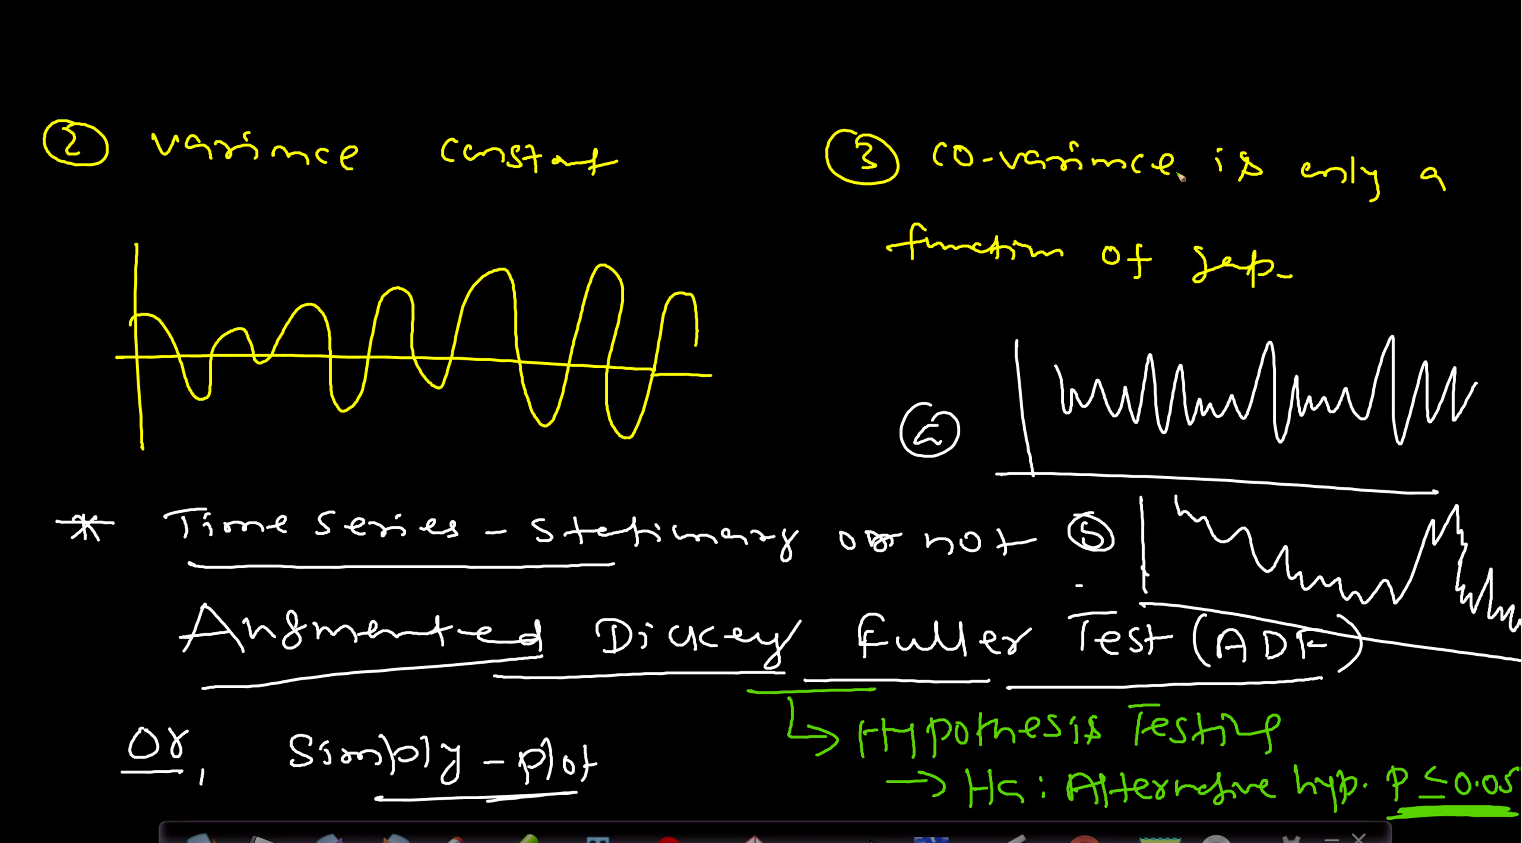 ② variance constant
③ co-variance is only a
function of gap-
* Time series - stationary or not
Augmented Dickey Fuller Test (ADF)
Or, Simply - plot
Hypothesis Testing
→ Ha: Alternative hyp. P ≤ 0.05